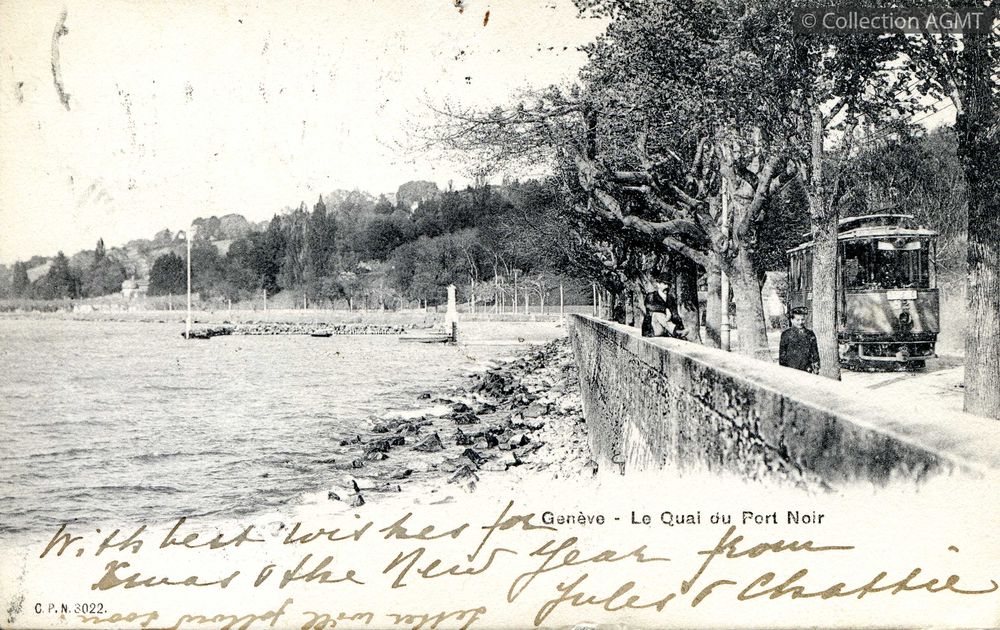 © Collection AGMT
Genève - Le Quai du Port Noir
With best wishes for
Xmas & the New Year from
Jules & Chattie
C. P. N. 3022.
Letter will follow soon